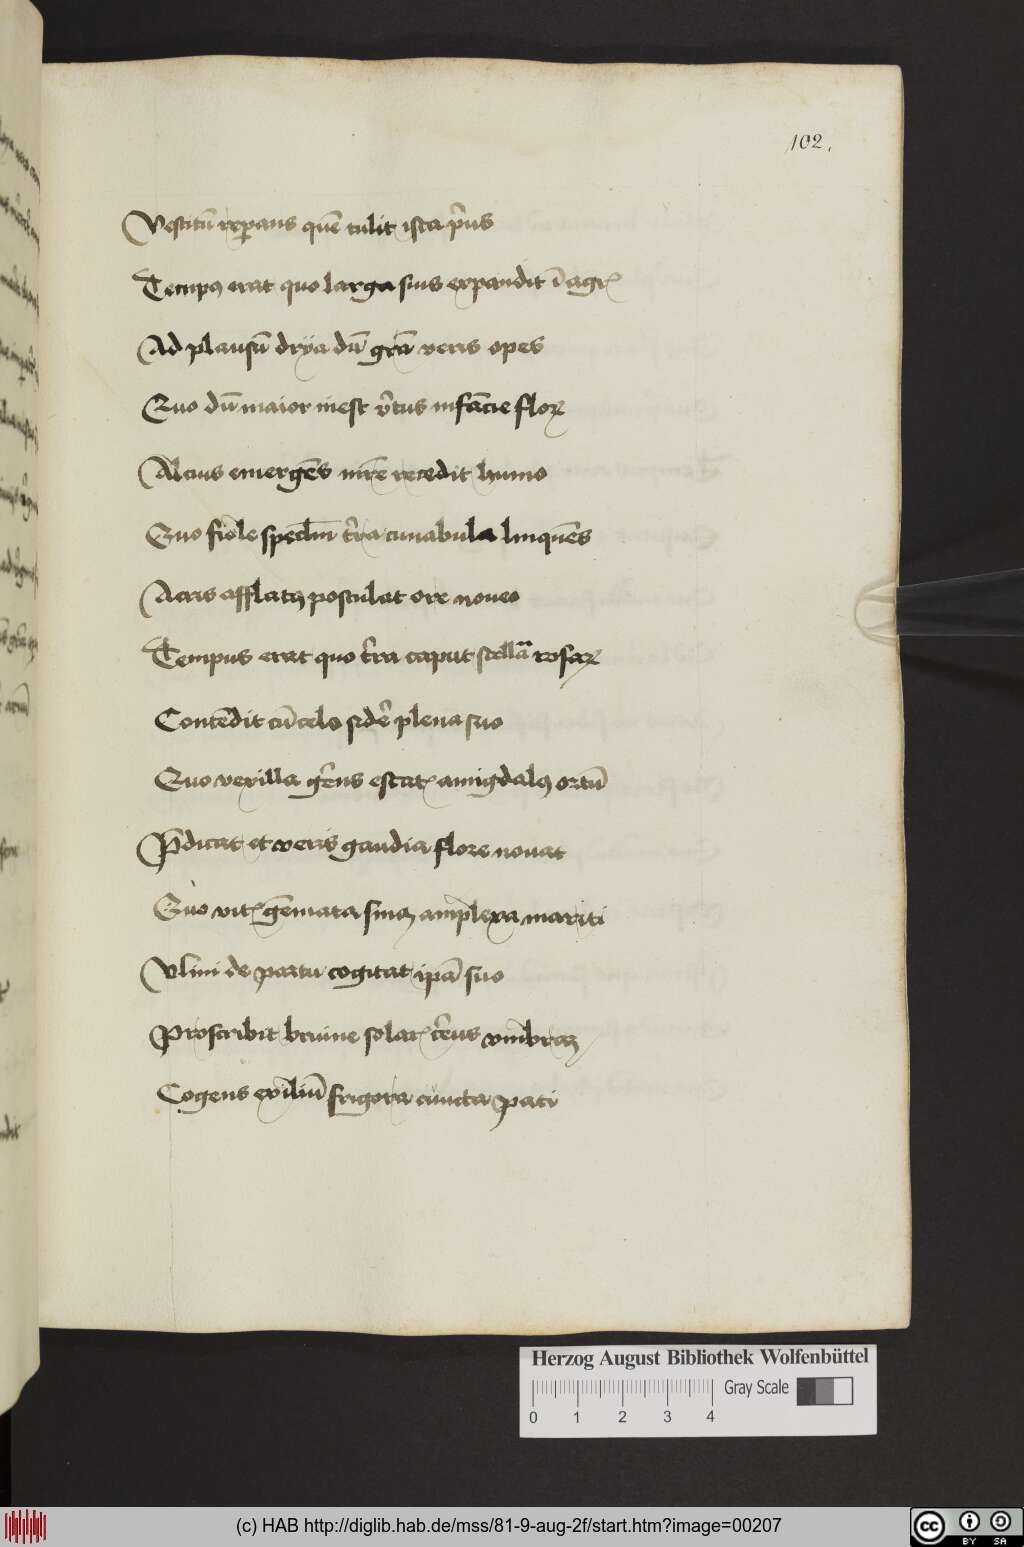 102.
Vestitū reꝑans quē tulit ista pͥus
Tempꝰ erat quo larga suis expandit ī agrꝭ
Ad plausū drÿa dū grā veris opes
Quo dū maior inest v̾tus infācie floꝝ
Alcius emergēs mr̄e recedit humo
Quo fiole specl̄m t̾ra cunabula linquēs
Aeris afflatꝰ postulat ore noueo
Tempus erat quo t̾ra caput stellāt rosaꝝ
Contēdit cū celo sider̾ plena suo
Quo vexilla ger̾ns estatꝭ amigdalꝰ ortū
P̄dicat et veris gaudia flore nouat
Quo vitꝭ gēmata sinꝰ amplexa mariti
Vlmi de partu cogitat ipā suo
Proscribit brume solarꝭ cer̾us vmbraꝫ
Cogens exiliū frigora cuncta pati
Herzog August Bibliothek Wolfenbüttel
Gray Scale
0 1 2 3 4
(c) HAB http://diglib.hab.de/mss/81-9-aug-2f/start.htm?image=00207
cc BY SA